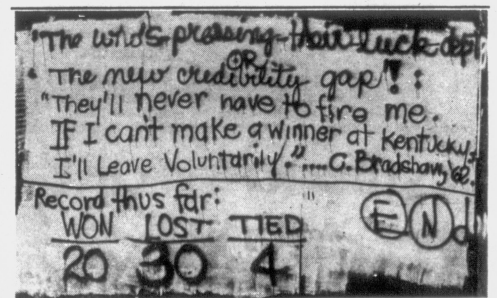 "The who's-pressing-their luck dept
OR
"The new credibility gap"! :
"They'll never have to fire me.
IF I can't make a winner at Kentucky,
I'll Leave Voluntarily."....C. Bradshaw, '62.
Record thus far:
WON LOST TIED
20 30 4
E N d